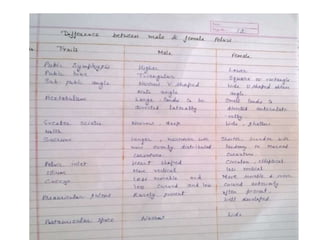 Difference between male & female Pelvis
Traits Male Female
Pubic Symphysis Higher Lower
Pubic bone Triangular Square or rectangle
Sub pubic angle Narrow V shaped Wide U shaped obtuse
angle angle
Acetabulum Large, tends to be Small tends to
directed laterally directed anterolate
rally
Greater sciatic Narrow, deep Wide, shallow
Notch
Sacrum longer, narrower with Shorter, broader with
more evenly distributed tendency to marked
curvature curvature
Pelvic inlet Heart shaped Circular, elliptical
Ilium More vertical less vertical
Coccyx Less movable and More movable &
less curved and less curved
Rarely present often present,
well developed
space Narrow Wide